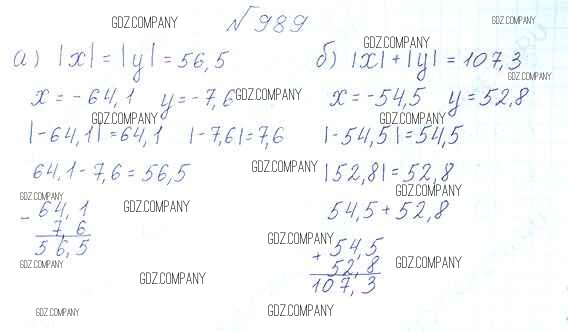 №989
GDZ.COMPANY
GDZ.COMPANY
а) |x| = |y| = 56,5
GDZ.COMPANY
б) |x| + |y| = 107,3
GDZ.COMPANY
x = -64,1 y = -7,6
GDZ.COMPANY
x = -54,5 y = 52,8
GDZ.COMPANY
GDZ.COMPANY
|-64,1| = 64,1 |-7,6| = 7,6
|-54,5| = 54,5
64,1 - 7,6 = 56,5
GDZ.COMPANY
|52,8| = 52,8
GDZ.COMPANY
GDZ.COMPANY
- 64,1
7,6
56,5
GDZ.COMPANY
54,5 + 52,8
GDZ.COMPANY
+ 54,5
52,8
107,3
GDZ.COMPANY
GDZ.COMPANY
GDZ.COMPANY
GDZ.COMPANY
GDZ.COMPANY